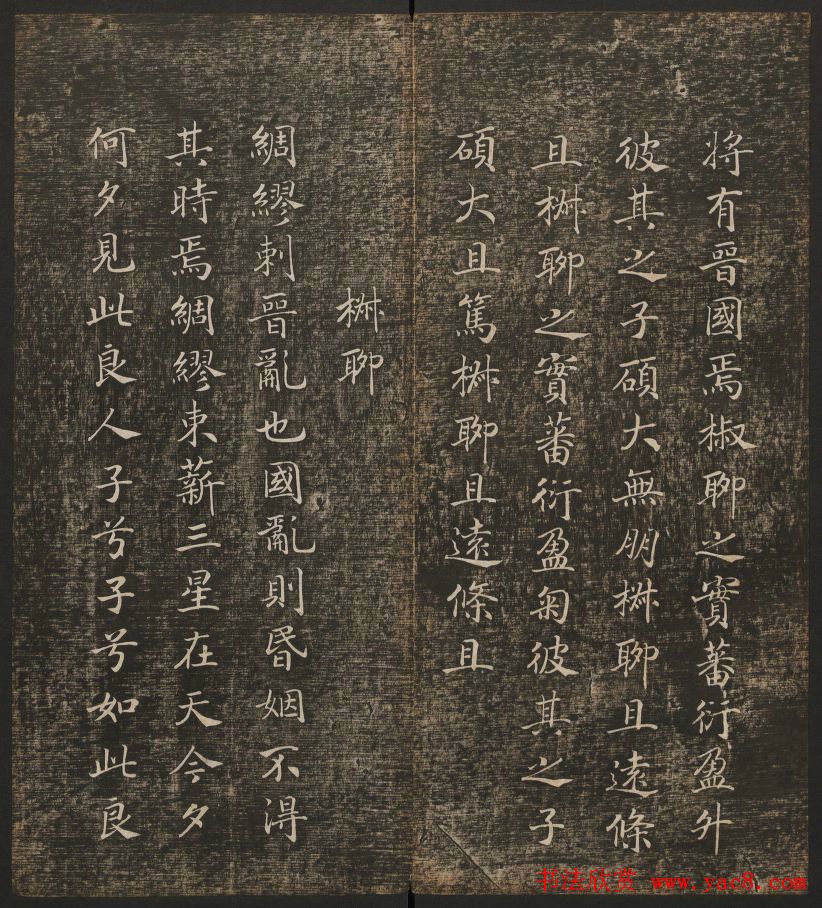 將有晉國焉椒聊之實蕃衍盈升
彼其之子碩大無朋椒聊且遠條
且椒聊之實蕃衍盈匊彼其之子
碩大且篤椒聊且遠條且
椒聊
綢繆刺晉亂也國亂則昬姻不得
其時焉綢繆束薪三星在天今夕
何夕見此良人子兮子兮如此良
书法欣赏 www.yac8.com